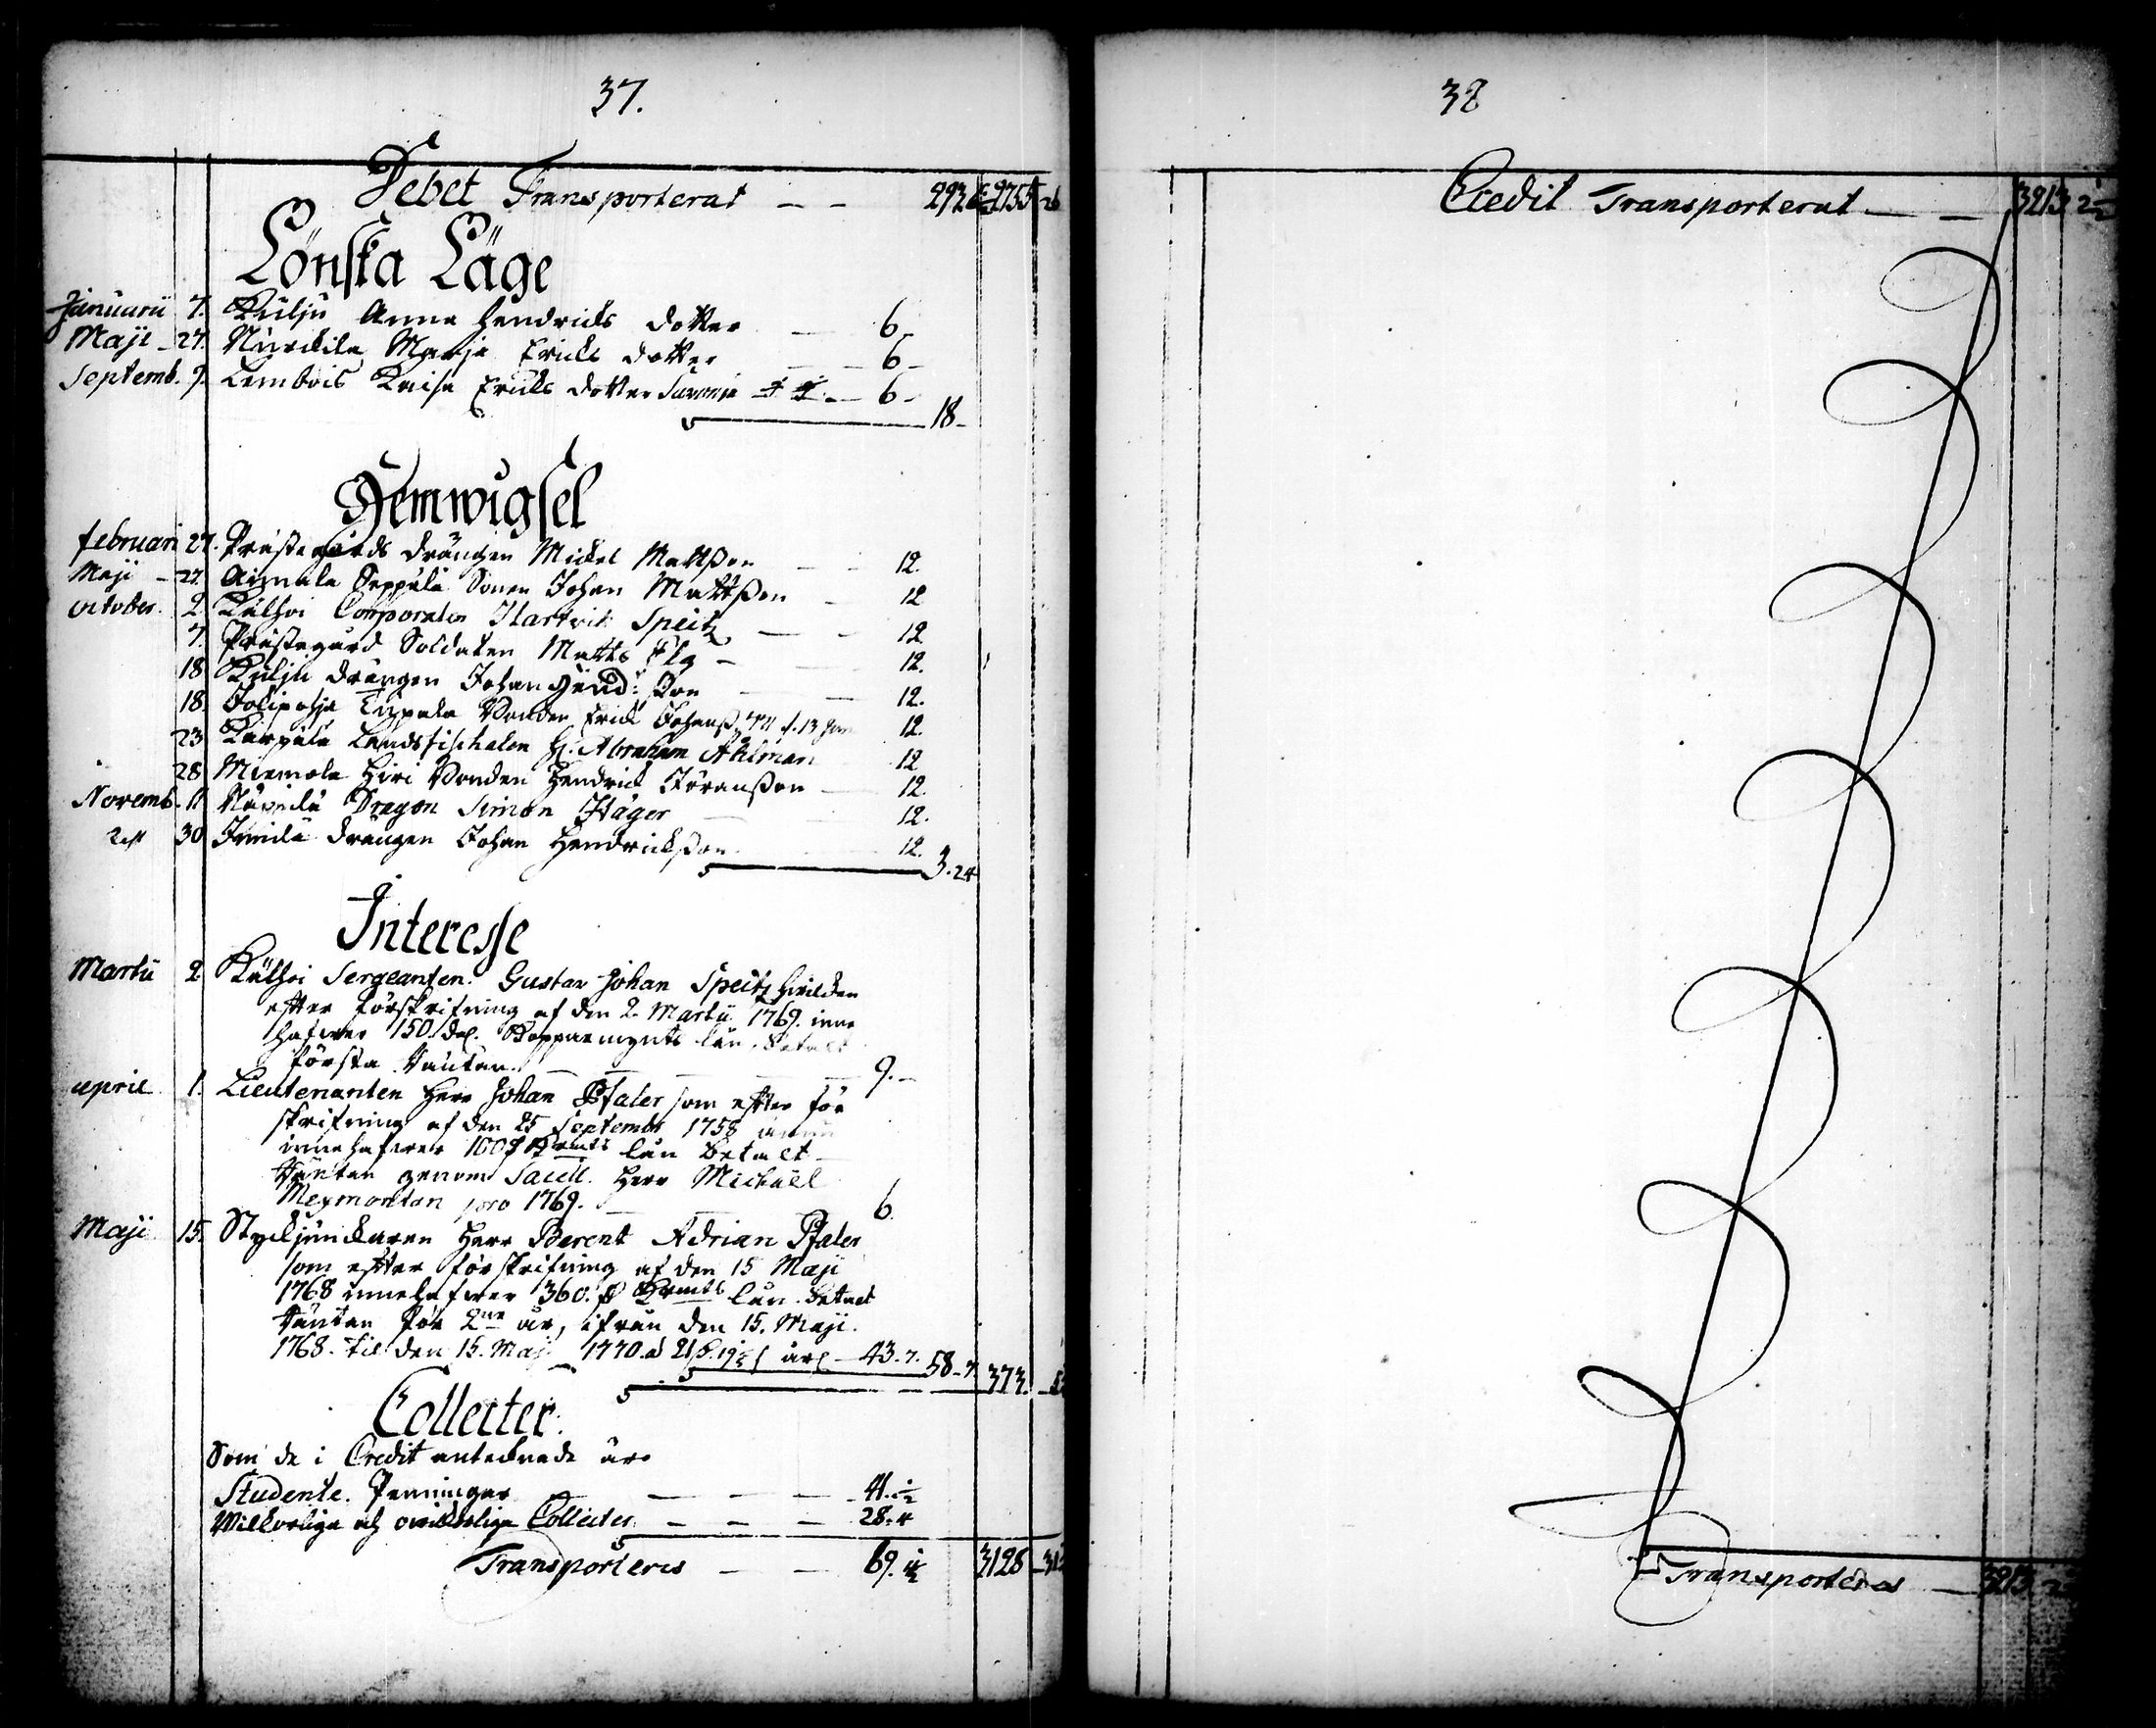 37.
Debet Transporterat — — 293 2755 26
Lönska Läge
Januarii 7. Kulju Anna Hendricks dotter — 6.
Maji 27. Nurckila Maria Ericks dotter — 6.
Septemb. 9. Lembois Kaisa Ericks dotter — 6.
18.
Hemwigsel
februari 27. Prästegårds drängen Mickel Mattsson — — 12.
Maji 27. Seppälä Sonen Johan Mattsson — 12
October. 2. Kulhoi Corporalen Hartvik Speitz — — 12.
7. Prästegård Soldaten Matts Elg — 12.
18 Kulju drängen Johan Hend:sson — 12.
18. Tuppala Bonden Erick Johanss. 12.
23 Landsfischalen H. Abraham Ahlman 12
28 Miemola Hiri Bonden Hendrick Jöransson — 12.
Novemb. Dragon Simon Häger — 12.
30 drängen Johan Hendricksson — 12.
3.24
Interesse
Martii 2. Kulhoi Sergeanten Gustav Johan Speitz hvilcken
efter förskrifning af den 2. Martii 1769. inne
hafwer 150. dal. Kopparmynts lån, betalt
första Räntan. — — — 9.—
April 1. Lieutenanten Herr Johan Pfaler som efter för
skrifning af den 25 Septembr 1758
innehafwer 100 lån betalt
Räntan genom Sacell. Herr Michaël
Mexmontan pro 1769. — — 6.
Maji 15. Styckjunckaren Herr Berent Adrian Pfaler
som efter förskrifning af den 15 Maji
1768 innehafwer 360. lån betalt
Räntan för 2ne år, ifrån den 15. Maji.
1768. til den 15. Maj 1770. — 43.7.
58.7. 373.
Collecter.
Som de i Credit antecknade äro
Studente. Penningar — — — 41.½
Wilkorliga och owilkorliga Collecter — — — 28.4
Transporteres — — 69. 3128
38
Credit Transporterat — — 3213 2½
Transporteres — 3213